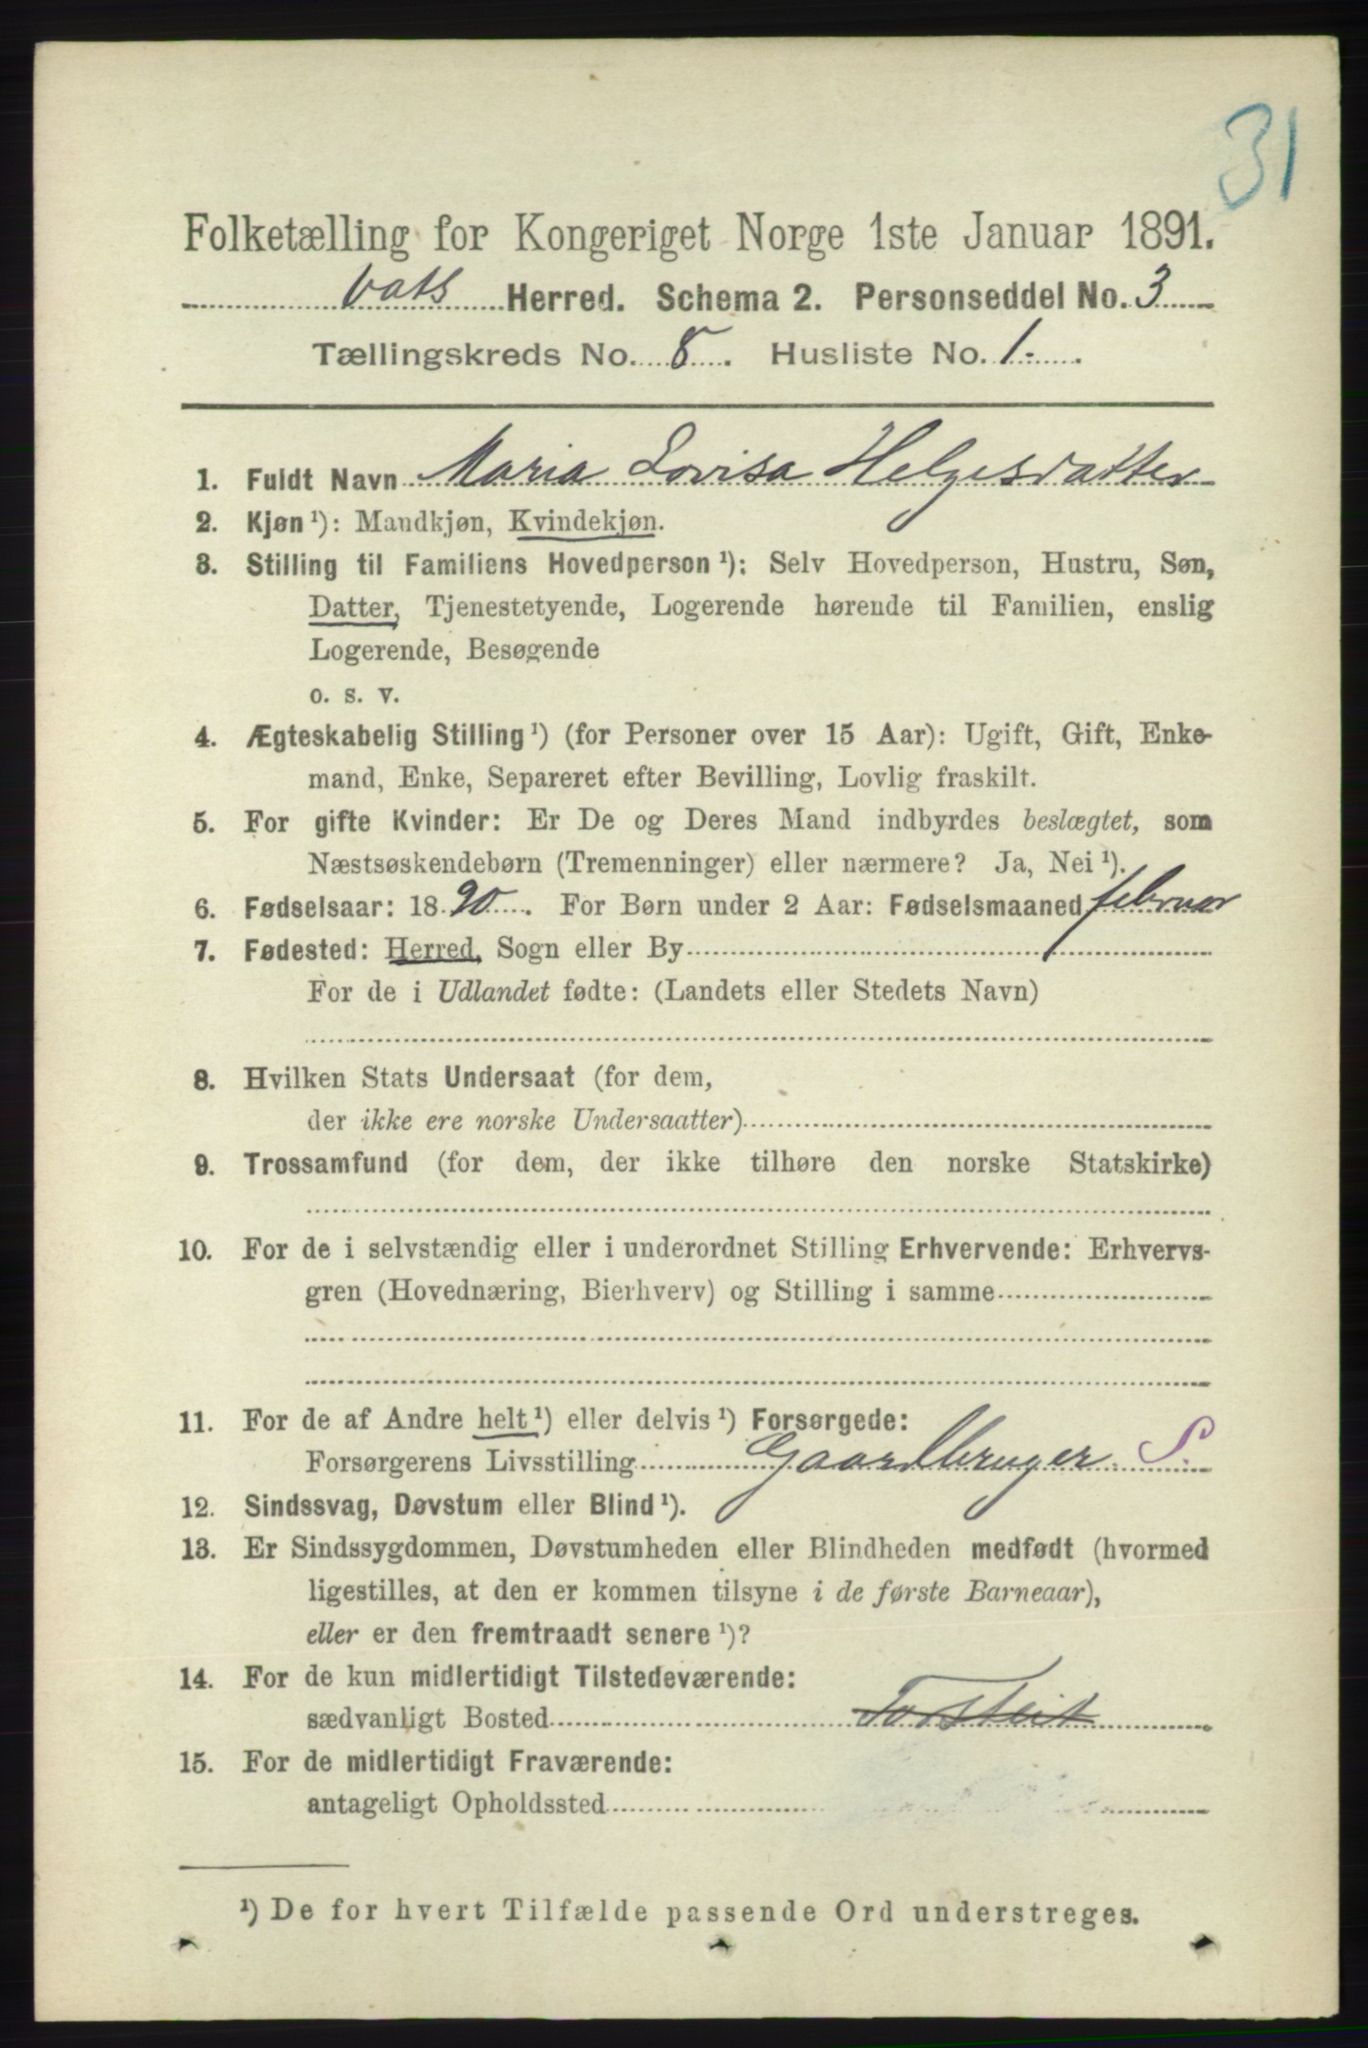 31
Folketælling for Kongeriget Norge 1ste Januar 1891.
Vats Herred. Schema 2. Personseddel No. 3
Tællingskreds No. 8. Husliste No. 1.
1. Fuldt Navn Maria Lovisa Helgesdatter
2. Kjøn¹): Mandkjøn, Kvindekjøn.
3. Stilling til Familiens Hovedperson¹): Selv Hovedperson, Hustru, Søn,
Datter, Tjenestetyende, Logerende hørende til Familien, enslig
Logerende, Besøgende
o. s. v.
4. Ægteskabelig Stilling¹) (for Personer over 15 Aar): Ugift, Gift, Enke-
mand, Enke, Separeret efter Bevilling, Lovlig fraskilt.
5. For gifte Kvinder: Er De og Deres Mand indbyrdes beslægtet, som
Næstsøskendebørn (Tremenninger) eller nærmere? Ja, Nei¹).
6. Fødselsaar: 1890. For Børn under 2 Aar: Fødselsmaaned februar
7. Fødested: Herred, Sogn eller By
For de i Udlandet fødte: (Landets eller Stedets Navn)
8. Hvilken Stats Undersaat (for dem,
der ikke ere norske Undersaatter)
9. Trossamfund (for dem, der ikke tilhøre den norske Statskirke)
10. For de i selvstændig eller i underordnet Stilling Erhvervende: Erhvervs-
gren (Hovednæring, Bierhverv) og Stilling i samme
11. For de af Andre helt¹) eller delvis¹) Forsørgede:
Forsørgerens Livsstilling Gaardbruger S.
12. Sindssvag, Døvstum eller Blind¹).
13. Er Sindssygdommen, Døvstumheden eller Blindheden medfødt (hvormed
ligestilles, at den er kommen tilsyne i de første Barneaar),
eller er den fremtraadt senere¹)?
14. For de kun midlertidigt Tilstedeværende:
sædvanligt Bosted
15. For de midlertidigt Fraværende:
antageligt Opholdssted
¹) De for hvert Tilfælde passende Ord understreges.